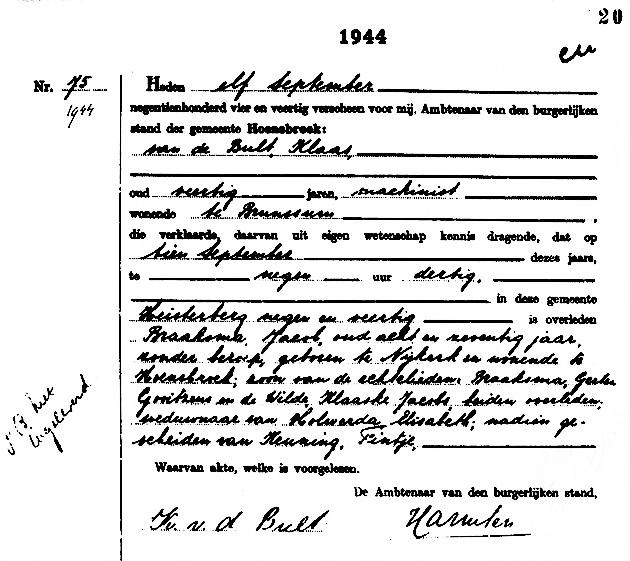 20
1944
Nr. 75
1944
Heden elf September
negentienhonderd vier en veertig verscheen voor mij, Ambtenaar van den burgerlijken
stand der gemeente Hoensbroek:
van de Bult, Klaas,
oud veertig jaren, machinist
wonende te Brunssum ,
die verklaarde, daarvan uit eigen wetenschap kennis dragende, dat op
tien September dezes jaars,
te negen uur dertig,
in deze gemeente
Heisterberg negen en veertig is overleden
Braaksma, Jacob, oud acht en zeventig jaar,
zonder beroep, geboren te Nijkerk en wonende te
Hoensbroek; zoon van de echtelieden: Braaksma,
Gooitzens en de Wilde, Klaaske Jacobs, beiden overleden,
weduwnaar van Holwerda, Elisabeth; nadien ge-
scheiden van Henning, Tintje,
Waarvan akte, welke is voorgelezen.
De Ambtenaar van den burgerlijken stand,
K. v. d Bult